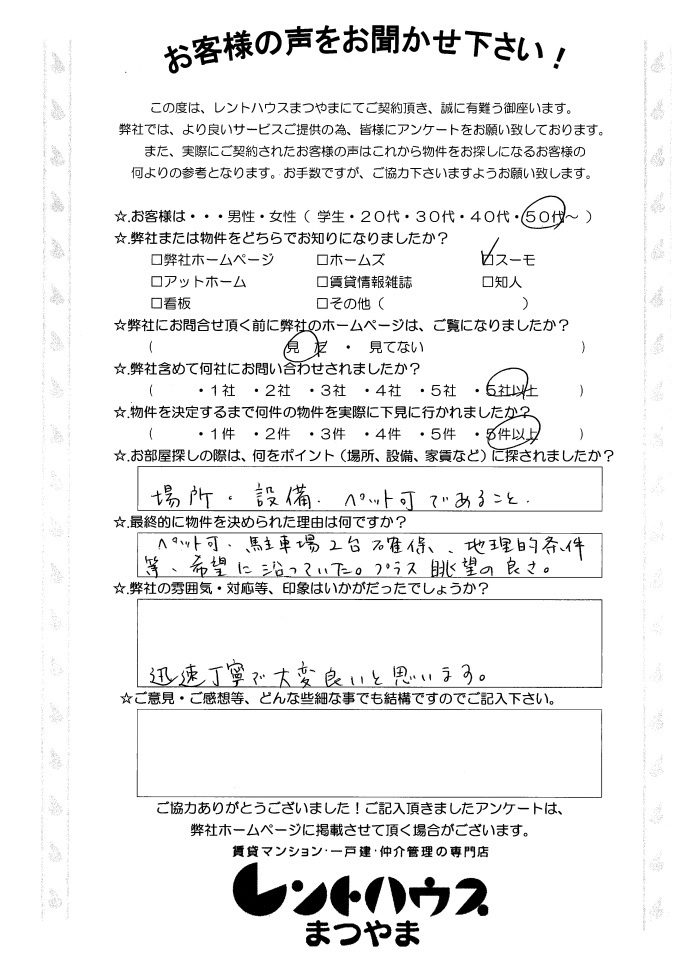 お客様の声をお聞かせ下さい！
この度は、レントハウスまつやまにてご契約頂き、誠に有難う御座います。
弊社では、より良いサービスご提供の為、皆様にアンケートをお願い致しております。
また、実際にご契約されたお客様の声はこれから物件をお探しになるお客様の
何よりの参考となります。お手数ですが、ご協力下さいますようお願い致します。
☆.お客様は・・・男性・女性（ 学生・２０代・３０代・４０代・５０代～ ）
☆.弊社または物件をどちらでお知りになりましたか？
□弊社ホームページ □ホームズ □スーモ
□アットホーム □賃貸情報雑誌 □知人
□看板 □その他（ ）
☆弊社にお問合せ頂く前に弊社のホームページは、ご覧になりましたか？
（ 見 た ・ 見てない ）
☆.弊社含めて何社にお問い合わせされましたか？
（ ・１社 ・２社 ・３社 ・４社 ・５社 ・５社以上 ）
☆.物件を決定するまで何件の物件を実際に下見に行かれましたか？
（ ・１件 ・２件 ・３件 ・４件 ・５件 ・５件以上 ）
☆.お部屋探しの際は、何をポイント（場所、設備、家賃など）に探されましたか？
場所・設備．ペット可であること．
☆.最終的に物件を決められた理由は何ですか？
ペット可、駐車場２台確保、、地理的条件
等、希望に沿っていた。プラス眺望の良さ。
☆.弊社の雰囲気・対応等、印象はいかがだったでしょうか？
迅速丁寧で大変良いと思います。
☆ご意見・ご感想等、どんな些細な事でも結構ですのでご記入下さい。
ご協力ありがとうございました！ご記入頂きましたアンケートは、
弊社ホームページに掲載させて頂く場合がございます。
賃貸マンション・一戸建・仲介管理の専門店
レントハウス
まつやま